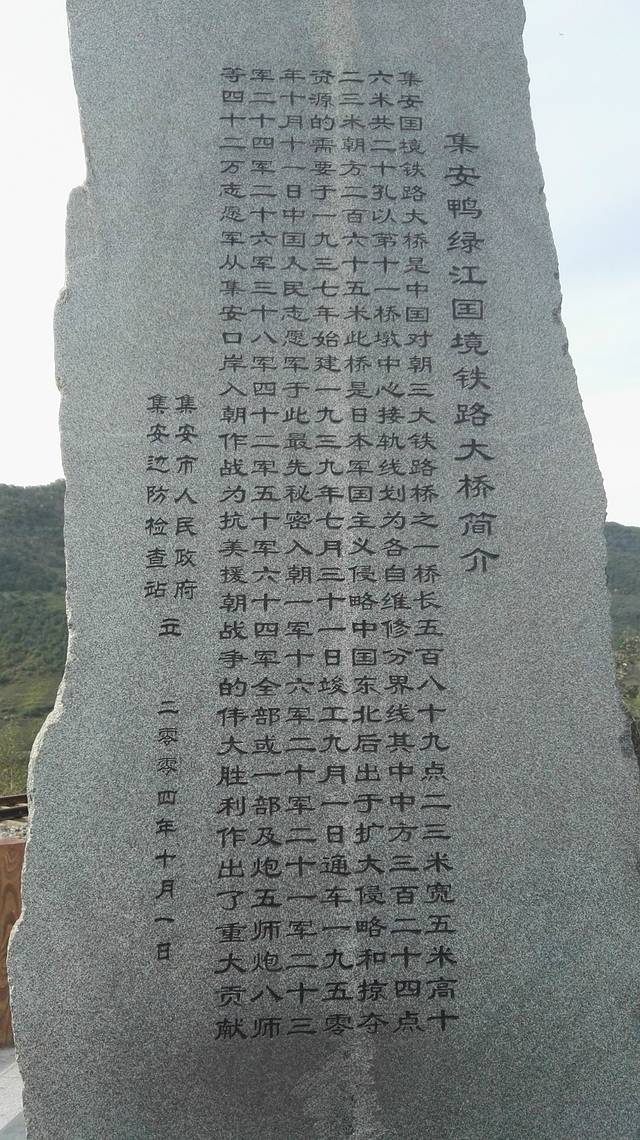 集安鸭绿江国境铁路大桥简介
集安国境铁路大桥是中国对朝三大铁路桥之一桥长五百八十九点二三米宽五米高十
六米共二十孔以第十一桥墩中心接轨线划为各自维修分界线其中中方三百二十四点
二三米朝方二百六十五米此桥是日本军国主义侵略中国东北后出于扩大侵略和掠夺
资源的需要于一九三七年始建一九三九年七月三十一日竣工九月一日通车一九五零
年十月十一日中国人民志愿军于此最先秘密入朝一军十六军二十军二十一军二十三
军二十四军二十六军三十八军四十二军五十军六十四军全部或一部及炮五师炮八师
等四十二万志愿军从集安口岸入朝作战为抗美援朝战争的伟大胜利作出了重大贡献
集安市人民政府
集安边防检查站 立 二零零四年十月一日